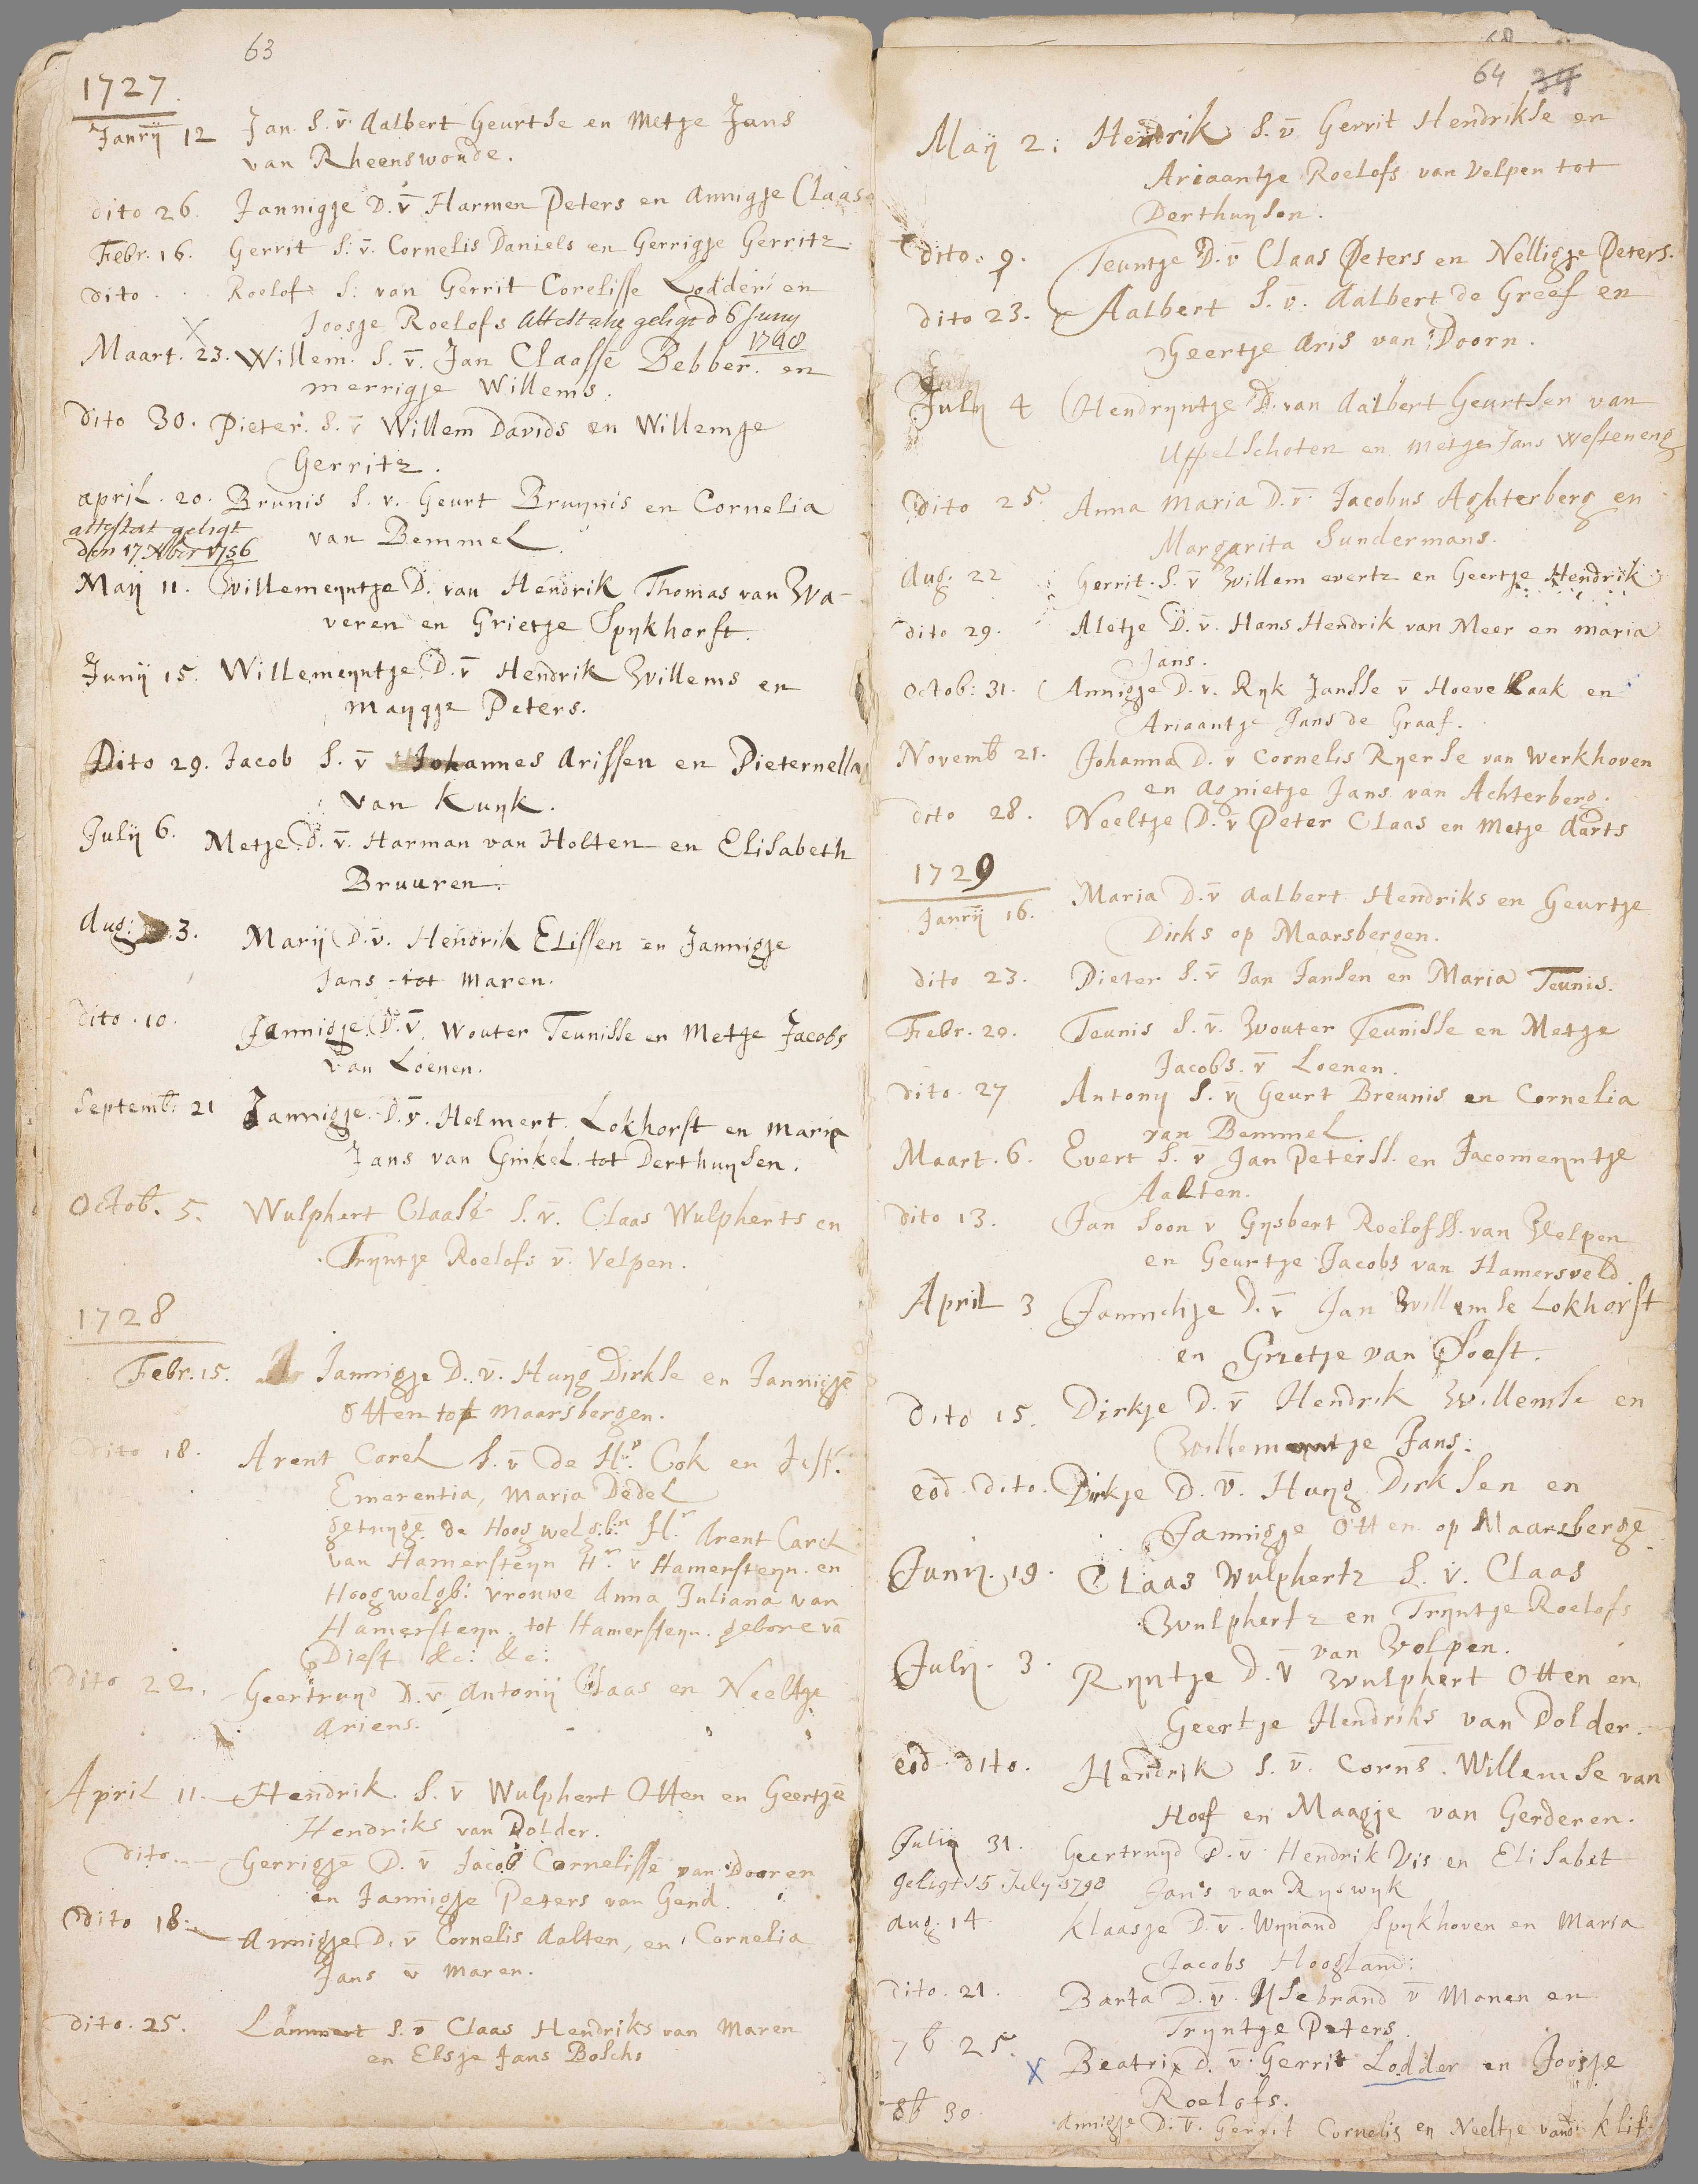 63
1727
Janrij 12 Jan. S. v̄. Aalbert Geurtse en Metje Jans
van Rheenswoude.
dito 26. Jannigje D. v̄ Harmen Peters en Annigje Claase
Febr. 16. Gerrit S. v̄. Cornelis Daniels en Gerrigje Gerritz.
dito . . Roelof S. van Gerrit Corelisse Lodder en
Joosje Roelofs Attestatie geligt d 6 Juny
1748
Maart. 23. Willem. S. v̄. Jan Claasse Bebber. en
merrigje Willems.
dito 30. Pieter. S. v̄ Willem Davids en Willemje
Gerritz.
april. 20. Brunis S. v. Geurt Bruynis en Cornelia
attestat geligt
den 17 Xber 1756
van Bemmel
Maij 11. Willemeyntje D. van Hendrik Thomas van Wa-
veren en Grietje Spykhorst.
Junij 15. Willemeyntje D. v̄ Hendrik Willems en
maygje Peters.
Dito 29. Jacob S. v̄ Johannes Arissen en Pieternella
van Kuyk.
Julij 6. Metje D. v̄. Harman van Holten en Elisabeth
Bruuren.
Aug: 3. Marij D. v. Hendrik Elissen en Jannigje
Jans tot Maren.
dito. 10. Jannigje D. v̄. Wouter Teunisse en Metje Jacobs
van Loenen.
Septemb: 21 Jannigje. D. v̄. Helmert. Lokhorst en Maria
Jans van Ginkel tot Derthuysen.
Octob. 5. Wulphert Claase S. v̄. Claas Wulpherts en
Tryntje Roelofs v̄. Velpen.
1728
Febr. 15. Jannigje D. v̄. Huyg Dirkse en Jannigje
Otten tot Maarsbergen.
dito 18. Arent Carel S. v̄ de Hr. Cok en Jufr.
Emerentia, Maria Dedel
getuyge de Hoog welg:bn Hr Arent Carel
van Hamersteyn Hr v̄ Hamersteyn. en
Hoog welgb: vrouwe Anna Juliana van
Hamersteyn. tot Hamersteyn. gebore vā
Diest &c: &c:
dito 22. Geertruyd D. v̄ Antonij Claas en Neeltje
Ariens.
April 11. Hendrik. S. v̄ Wulphert Otten en Geertje
Hendriks van Dolder.
dito. Gerrigje D. v̄ Jacob Cornelisse van Dooren
en Jannigje Peters van Gend.
dito 18. Annigje D. v̄ Cornelis Aalten, en Cornelia
Jans v̄ Maren.
dito. 25. Lammert S. v̄ Claas Hendriks van Maren
en Elsje Jans Bosch.
64
Maij 2: Hendrik S. v̄ Gerrit Hendrikse en
Ariaantje Roelofs van Velpen tot
Derthuysen.
dito. 9. Teuntje D. v̄ Claas Peters en Nelligje Peters.
dito 23. Aalbert S. v̄. Aalbert de Greef en
Geertje Aris van Doorn.
July 4 Hendryntje D. van Aalbert Geurtsen van
Uppelschoten en Metje Jans Westeneng
Dito 25 Anna Maria D. v̄ Jacobus Aghterberg en
Margarita Sundermans.
Aug. 22 Gerrit. S. v̄ Willem evertz en Geertje Hendrik
dito 29. Aletje D. v̄. Hans Hendrik van Meer en maria
Jans.
Octob: 31. Annigje D. v̄. Ryk Jansse v̄ Hoevelaak en
Ariaantje Jans de Graaf.
Novemb 21. Johanna D. v̄ Cornelis Ryerse van Werkhoven
en Agnietje Jans van Achterberg.
dito 28. Neeltje D. v̄ Peter Claas en Metje Aarts
1729
Janrij 16. Maria D. v̄ Aalbert Hendriks en Geurtje
Dirks op Maarsbergen.
dito 23. Pieter S. v̄ Jan Jansen en Maria Teunis.
Febr. 20. Teunis S. v̄. Wouter Teunisse en Metje
Jacobs. v̄ Loenen.
dito. 27 Antony S. v̄ Geurt Breunis en Cornelia
van Bemmel.
Maart. 6. Evert S. v̄ Jan Peterss. en Jacomeyntje
Aalten.
dito 13. Jan Soon v̄ Gysbert Roelofss. van Velpen
en Geurtje Jacobs van Hamersveld.
April 3 Jannichje D. v̄ Jan Willemse Lokhorst
en Grietje van Soest.
dito 15. Dirkje D. v̄ Hendrik Willemse en
Willemeyntje Jans:
eod. dito. Dirkje D. v̄. Huyg Dirksen en
Jannigje Otten op Maarsberge
Junij. 19. Claas Wulphertz S. v̄. Claas
Wulphertz en Tryntje Roelofs
van Volpen.
July. 3. Ryntje D. v̄ Wulphert Otten en
Geertje Hendriks van Dolder.
eod. dito. Hendrik S. v̄. Corns. Willemse van
Hoof en Maagje van Gerderen.
Julij 31. Geertruyd D. v̄ Hendrik Vis en Elisabet
geligt 15 July 1798 Jans van Ryswyk
Aug. 14. Klaasje D. v̄. Wynand Spykhoven en Maria
Jacobs Hoogland:
dito. 21. Barta D. v̄. Ysebrand v̄ Manen en
Tryntje Peters.
7b 25. Beatrix D. v̄. Gerrit Lodder en Joosje
Roelofs.
8b 30. Annigje D. v̄. Gerrit Cornelis en Neeltje vande Klif